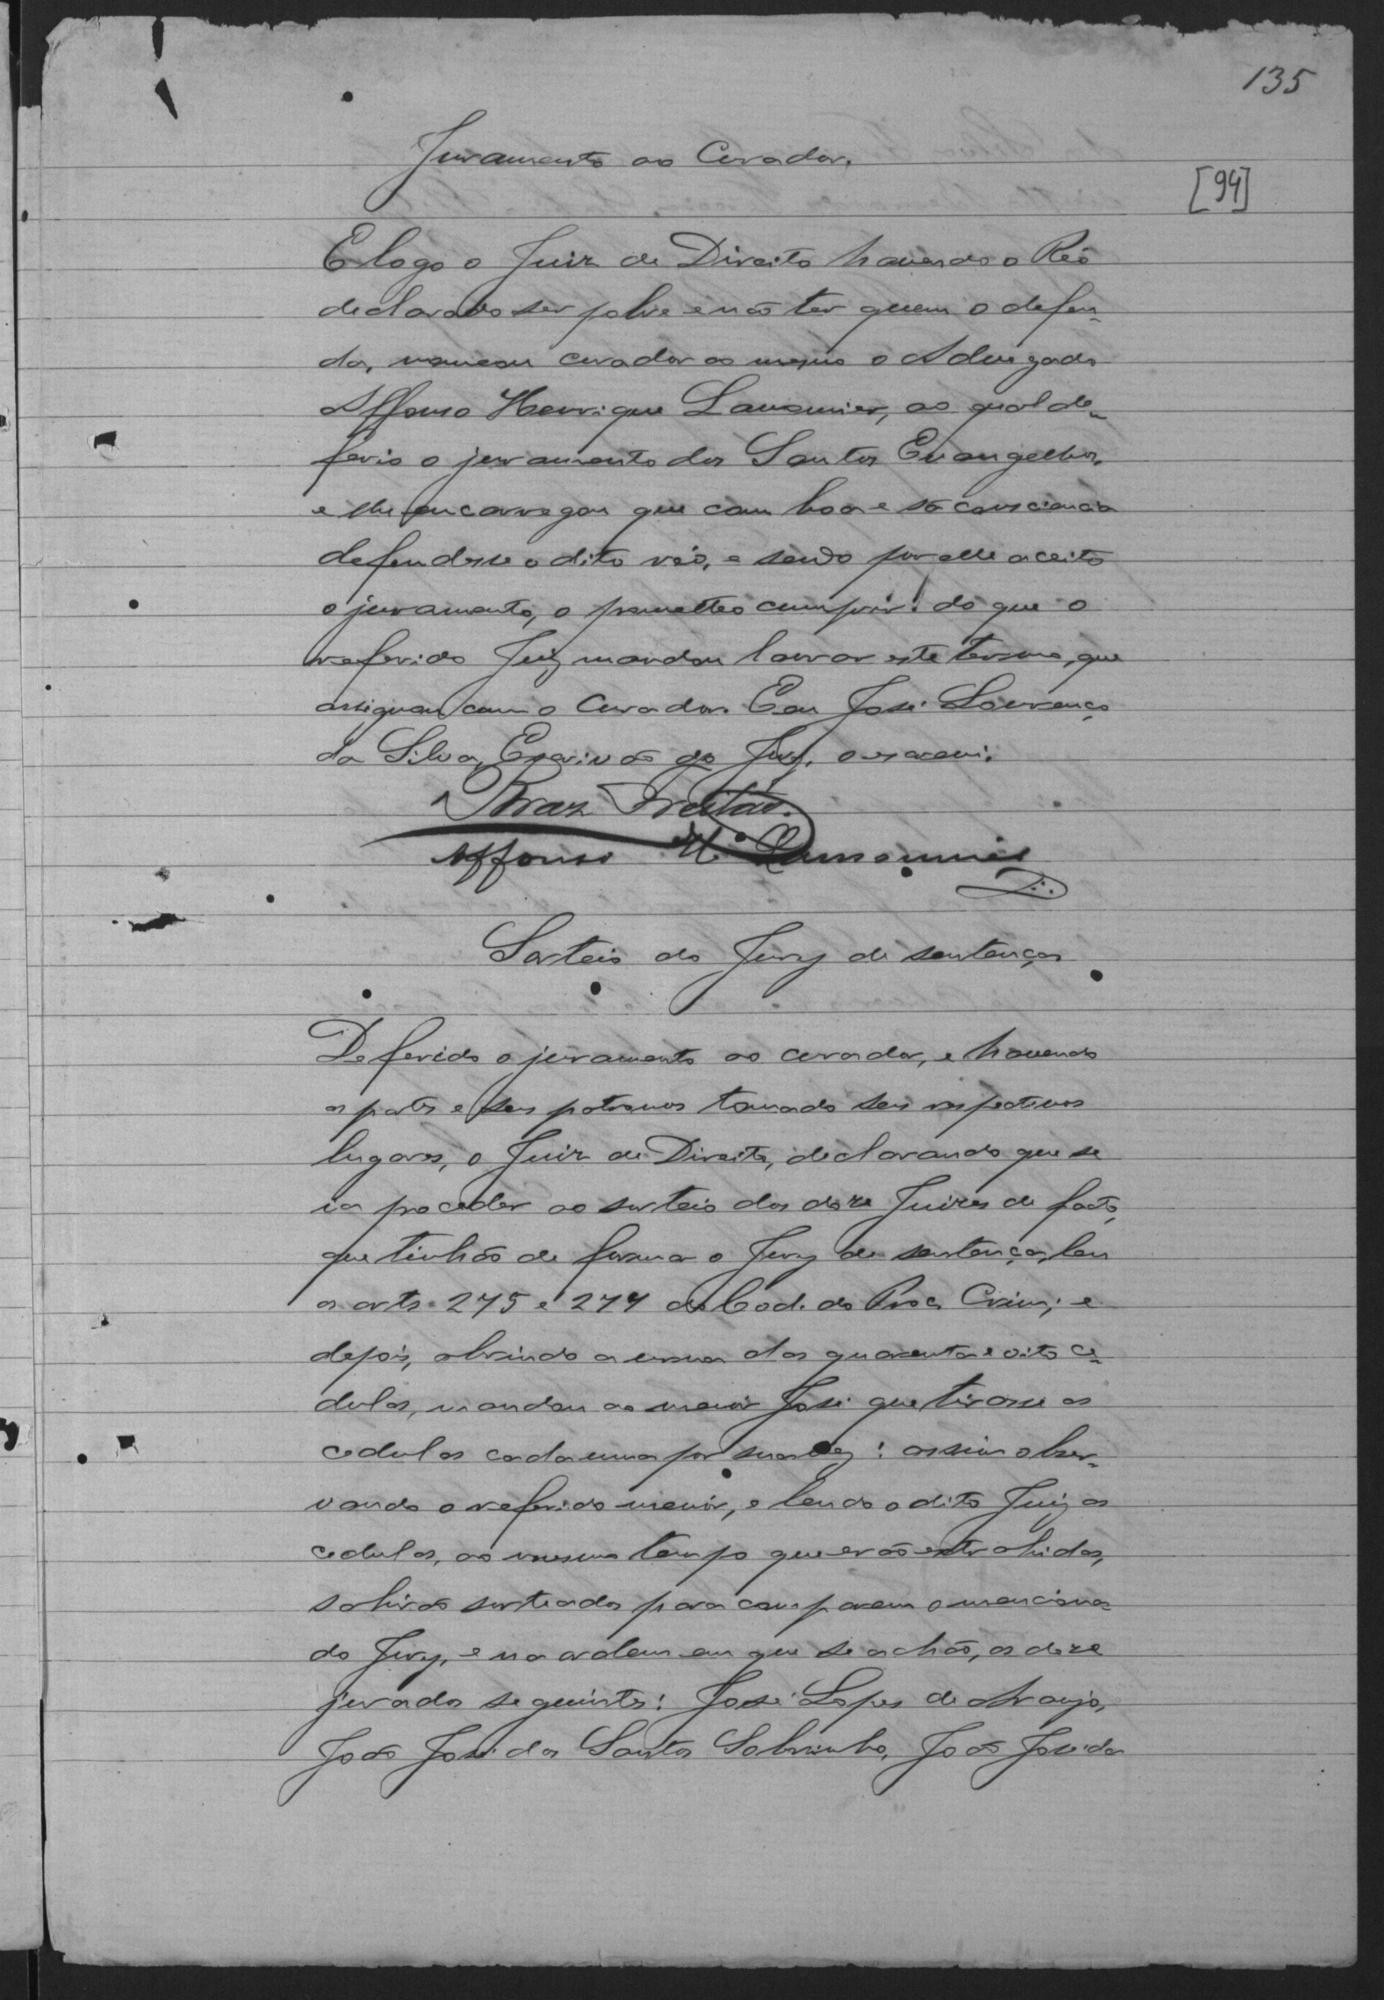 135
Juramento ao Curador.
[94]
E logo o Juiz de Direito havendo o Réo
declarado ser pobre e não ter quem o defen-
da, nomeou curador ao mesmo o Advogado
Affonso Henrique Lamounier, ao qual de-
ferio o juramento dos Santos Evangelhos,
e lhe encarregou que com boa e sã consciencia
defendesse o dito réo, e sendo por elle aceito
o juramento, o prometteo cumprir: do que o
referido Juiz mandou lavrar este termo, que
assignou com o Curador. Eou José Lourenço
da Silva, Escrivão do Jury, o escrevi.
Braz Freitas.
Affonso H. Lamounier
Sorteio do Jury de sentença
Deferido o juramento ao curador, e havendo
as partes e seus patronos tomado seus respectivos
lugares, o Juiz de Direito, declarando que se
ia proceder ao sorteio dos doze Juizes de facto,
que tinhão de formar o Jury de sentença, leu
os arts. 275 e 277 do Cod. do Proc. Crim; e
depois, abrindo a urna das quarenta e oito ce-
dulas, mandou ao menor José que tirasse as
cedulas cada uma por sua vez: assim obser-
vando o referido menór, e lendo o dito Juiz as
cedulas, ao mesmo tempo que erão extrahidas,
sahirão sorteados para comporem o menciona-
do Jury, e na ordem em que se achão, os doze
jurados seguintes: José Lopes de Araujo,
João José dos Santos Sobrinho, João José da